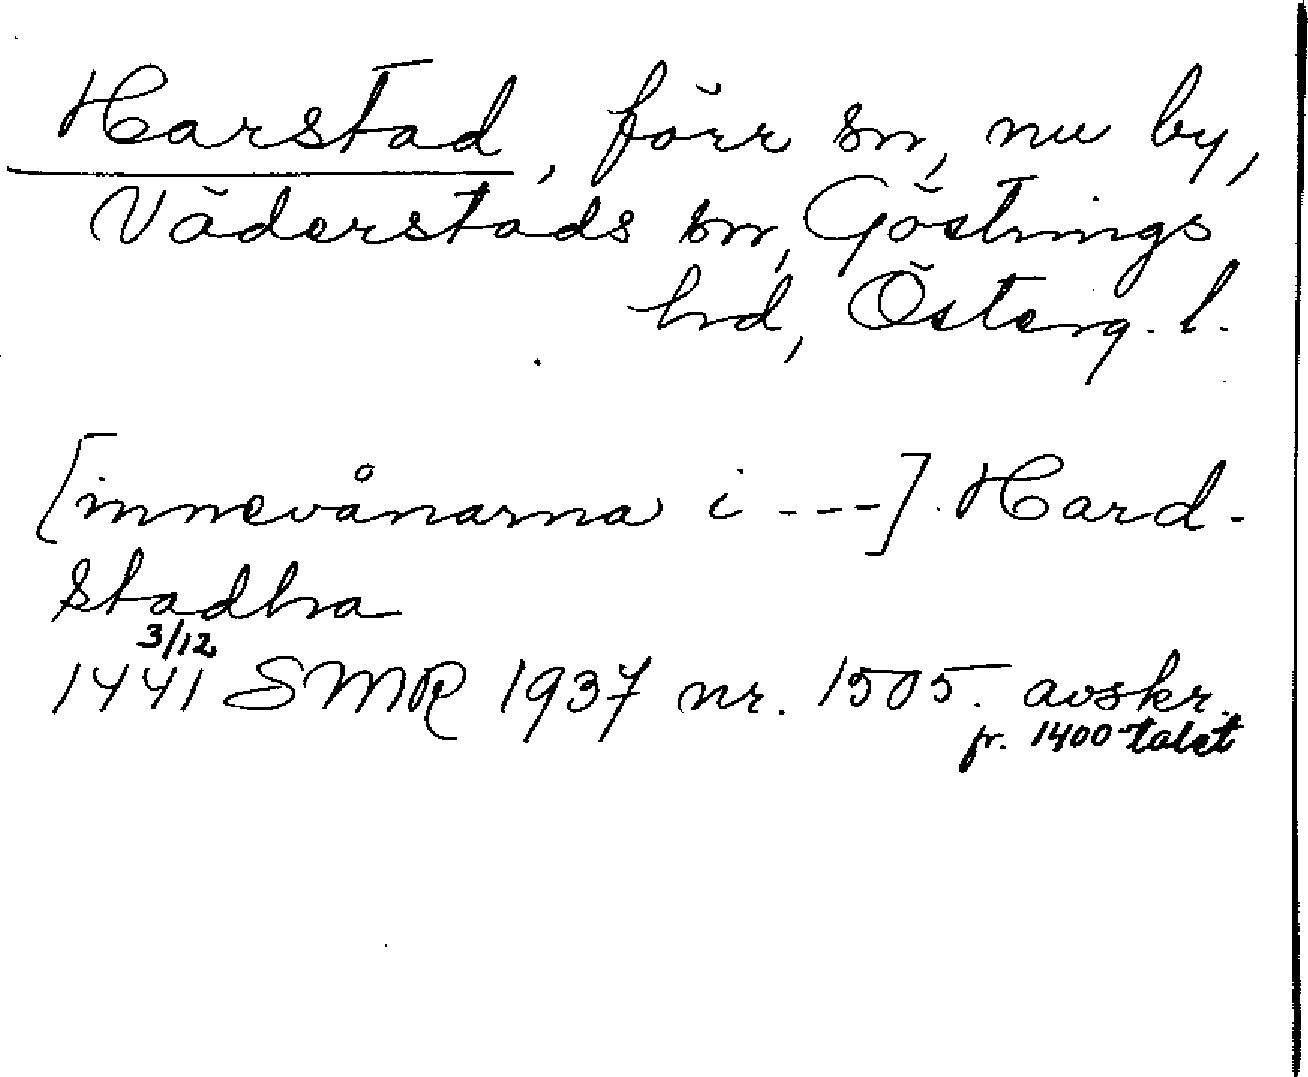 Harstad, förr sn, nu by,
Väderstads sn, Göstrings
hd, Österg. l.
[innevånarna i ---] Hard-
stadhra
3/12
1441 SMR 1937 nr. 1505. avskr.
fr. 1400-talet